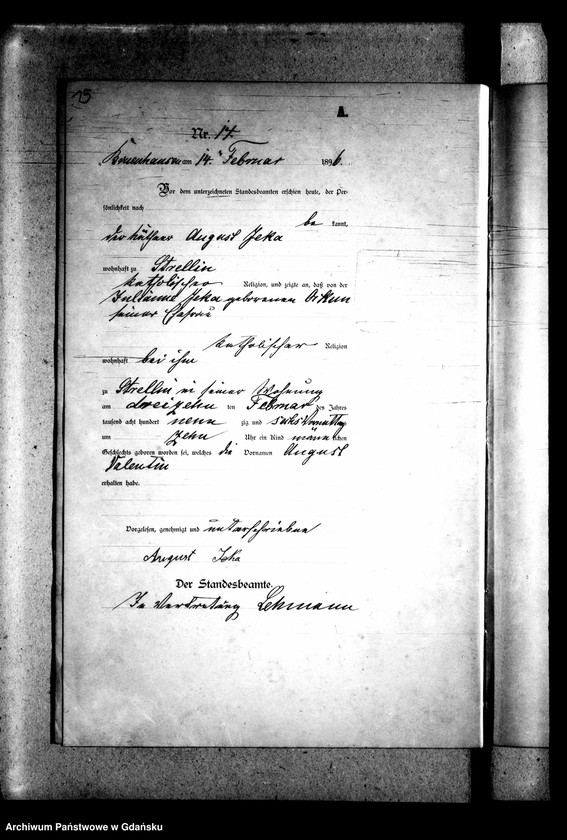 15
A.
Nr. 14.
am 14. Februar 1896.
Vor dem unterzeichneten Standesbeamten erschien heute, der Per-
sönlichkeit nach
be kannt,
der August Jeka
wohnhaft zu Strellin
katholischer Religion, und zeigte an, daß von der
Julianne Jeka geborenen
seiner Ehefrau
katholischer Religion
wohnhaft bei ihm
zu Strellin in seiner Wohnung
am dreizehn ten Februar des Jahres
tausend acht hundert neun zig und sechs Vormittag
um zehn Uhr ein Kind männ lichen
Geschlechts geboren worden sei, welches die Vornamen August
Valentin
erhalten habe.
Vorgelesen, genehmigt und unterschrieben
August Jeka
Der Standesbeamte.
In Vertretung Lehmann
Archiwum Państwowe w Gdańsku